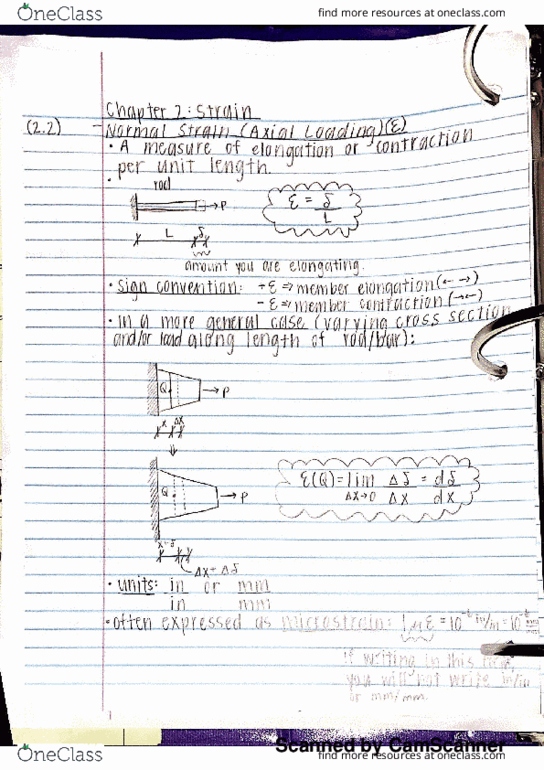 OneClass
find more resources at oneclass.com
Chapter 2: Strain
(2.2)
- Normal Strain (Axial Loading)(ε)
• A measure of elongation or contraction
per unit length.
•
rod
P
ε = δ/L
L δ
amount you are elongating.
• sign convention: +ε ⇒ member elongation (← →)
- ε ⇒ member contraction (→←)
• in a more general case (varying cross section
and/or load along length of rod/bar):
Q
P
x Δx
⇓
ε(Q) = lim Δδ/Δx = dδ/dx
Δx→0
Q
P
x+δ
Δx + Δδ
• units: in/in or mm/mm
• often expressed as microstrain: 1με = 10⁻⁶ in/in = 10⁻⁶ mm/mm
if writing in this form,
you will not write in/in
or mm/mm.
1
OneClass
Scanned by CamScanner
find more resources at oneclass.com